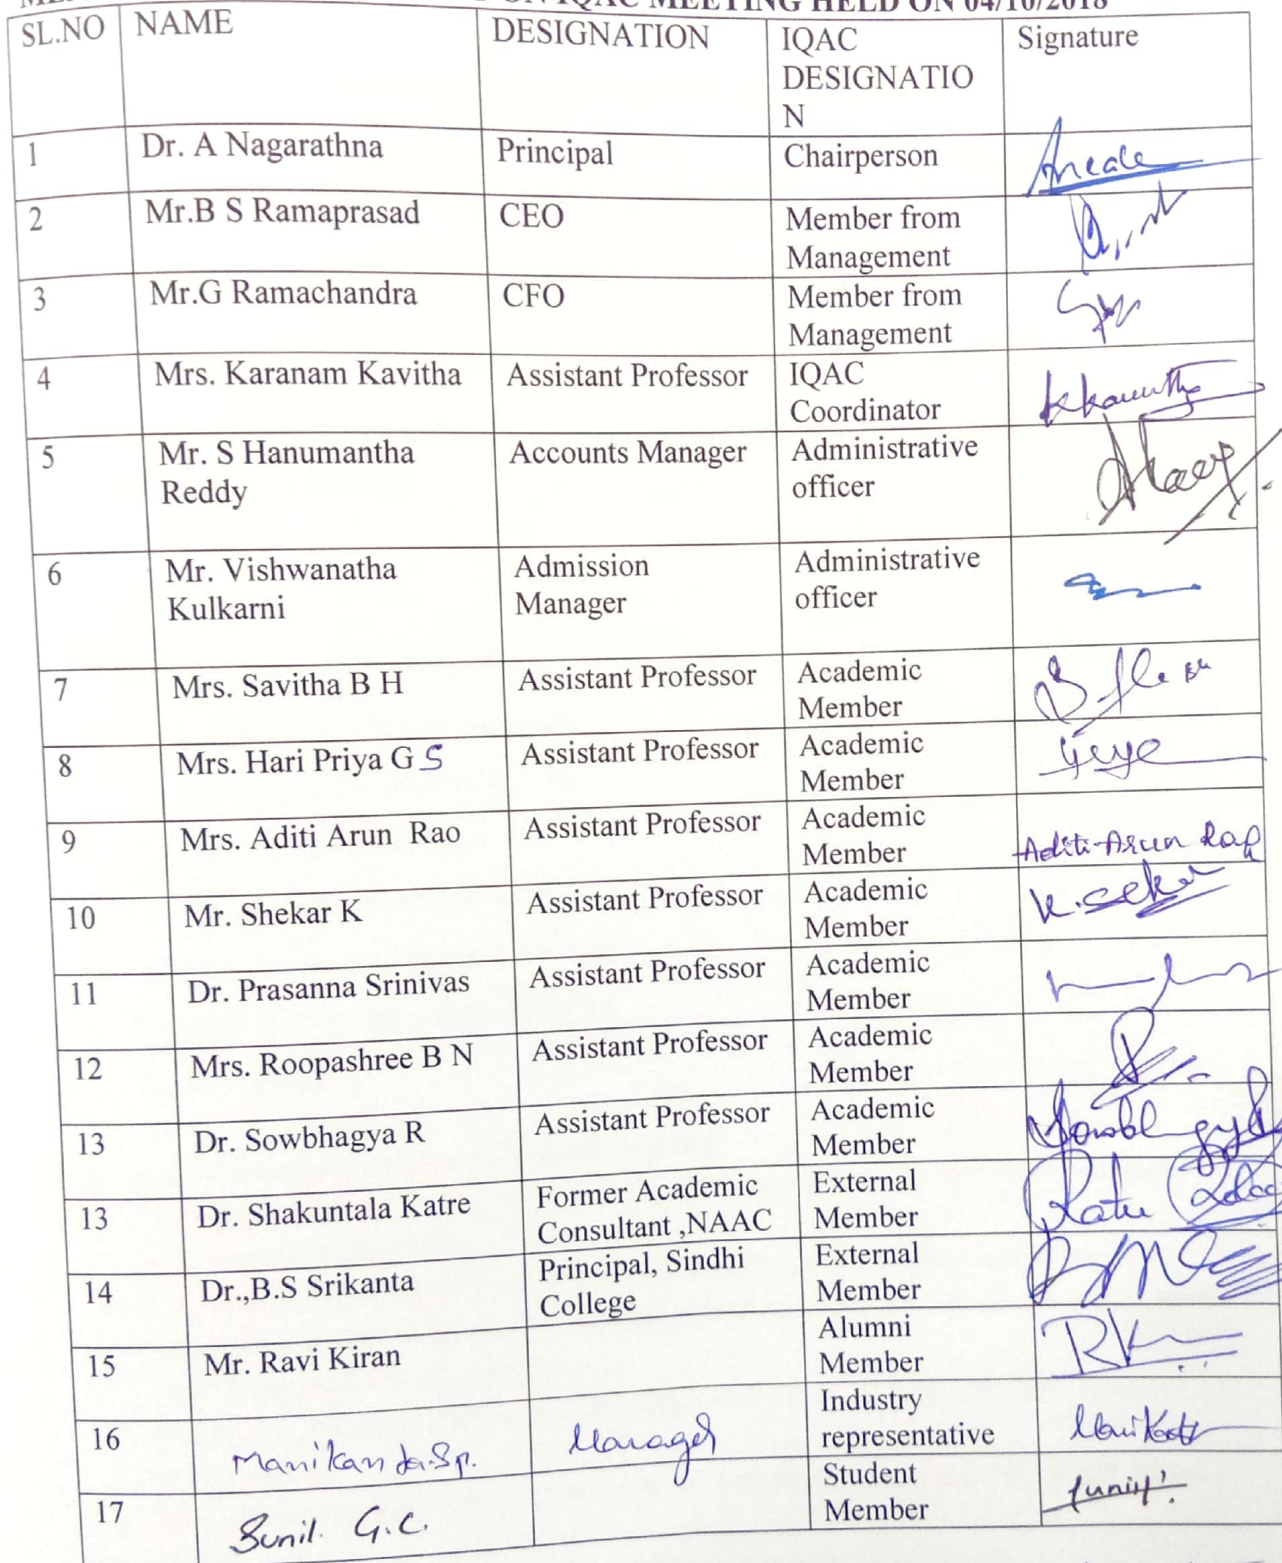 ON IQAC MEETING HELD ON 04/10/2018
SL.NO NAME DESIGNATION IQAC Signature
DESIGNATIO
N
1 Dr. A Nagarathna Principal Chairperson
2 Mr.B S Ramaprasad CEO Member from
Management
3 Mr.G Ramachandra CFO Member from
Management
4 Mrs. Karanam Kavitha Assistant Professor IQAC
Coordinator
5 Mr. S Hanumantha Accounts Manager Administrative
Reddy officer
6 Mr. Vishwanatha Admission Administrative
Kulkarni Manager officer
7 Mrs. Savitha B H Assistant Professor Academic
Member
8 Mrs. Hari Priya G S Assistant Professor Academic
Member
9 Mrs. Aditi Arun Rao Assistant Professor Academic
Member Aditi Arun Rao
10 Mr. Shekar K Assistant Professor Academic K. Sekar
Member
11 Dr. Prasanna Srinivas Assistant Professor Academic
Member
12 Mrs. Roopashree B N Assistant Professor Academic
Member
13 Dr. Sowbhagya R Assistant Professor Academic
Member
13 Dr. Shakuntala Katre Former Academic External
Consultant ,NAAC Member
14 Dr.,B.S Srikanta Principal, Sindhi External
College Member
15 Mr. Ravi Kiran Alumni
Member
16 Manikanda.Sp. Manager Industry
representative
17 Sunil. G.C. Student
Member